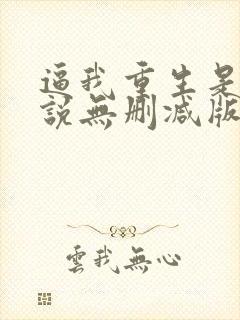 逼我重生是
説無删減版
雲我無心